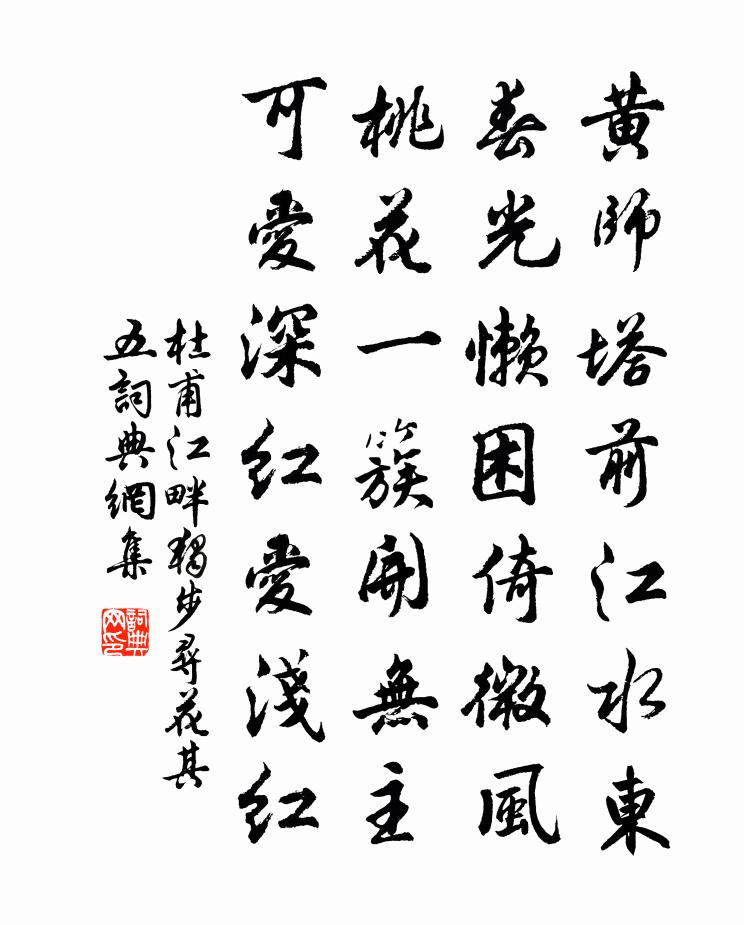 黄師塔前江水東
春光懶困倚微風
桃花一簇開無主
可愛深紅愛淺紅
杜甫江畔獨步尋花其
五詞典網集
詞典
网印